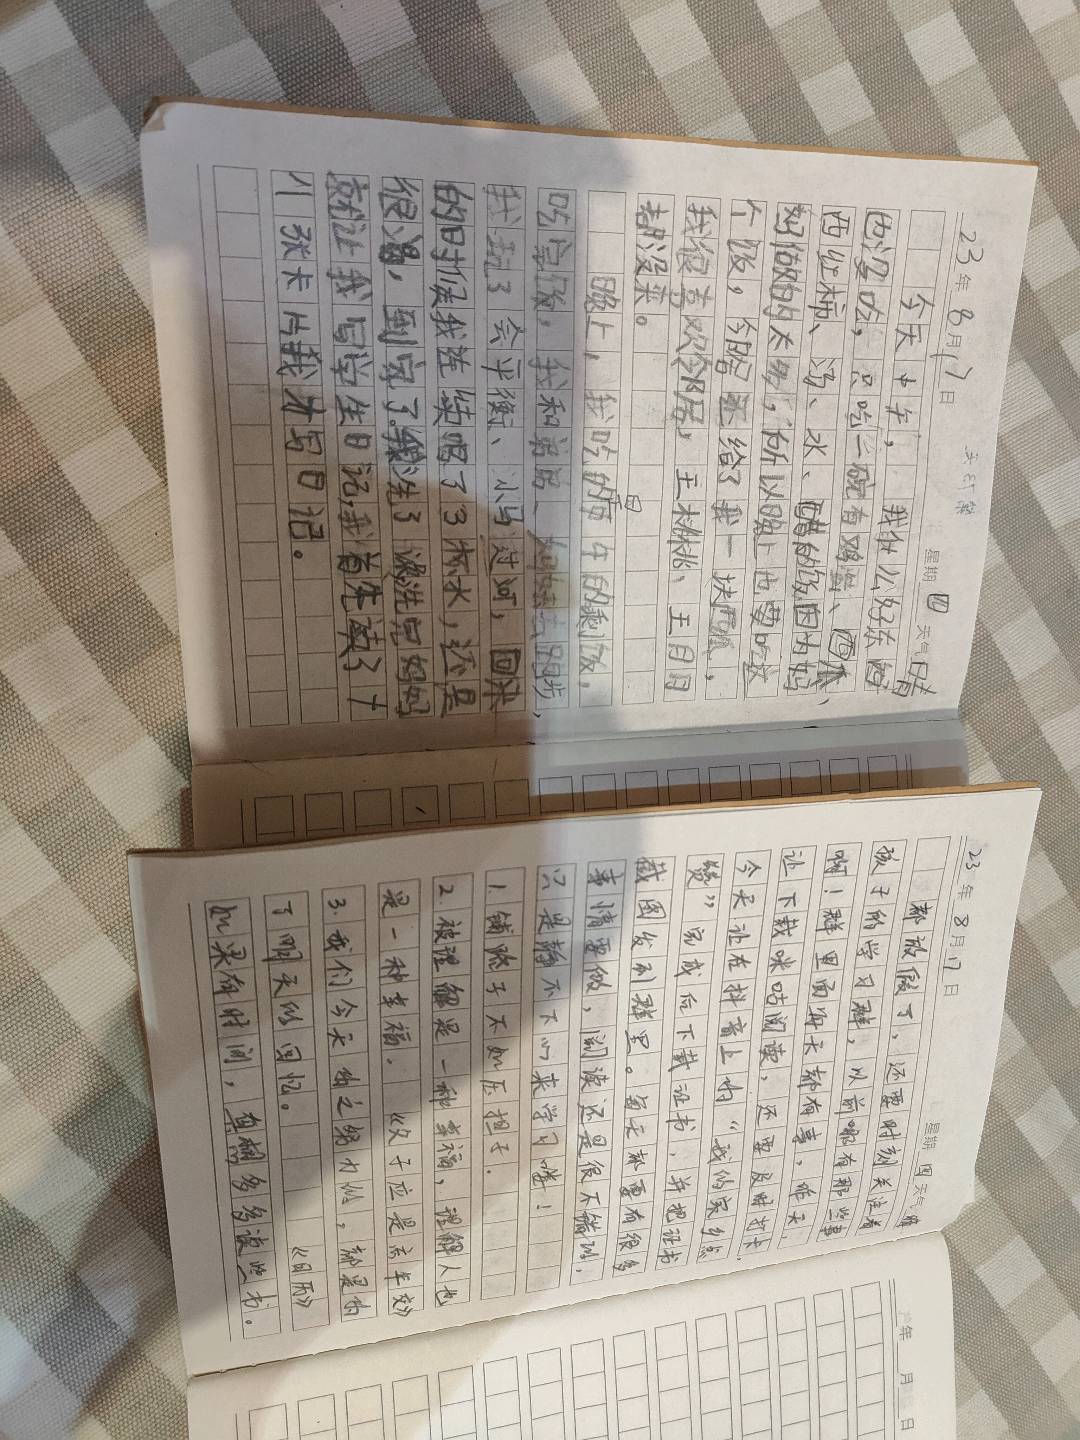 23年8月17日 星期四 天气晴
今天中午,我什么好东西
也没吃,只吃一碗有鸡蛋、西瓜、
西红柿、汤、水、醋的饭因为妈
妈做的太多,所以晚上也要吃这
个饭,今
还给了我一块西瓜,
我很喜欢
王林桃、王月月
都没来。
晚上,我吃的西中午的剩饭,
吃完饭,我和爸爸、
去跑步,
我玩了会平衡、小马过河,回来
的时候我连续喝了3杯水,还是
很渴,到家了我洗了澡洗完妈妈
就让我写学生日记我首先读了十
八张卡片我才写日记。
23年8月17日
星期四 天气晴
都放假了,还要时刻关注着
孩子的学习群,以前哪有那些事
啊!群里面每天都有事,昨天,
让下载咪咕阅读,还要及时打卡,
今天让在抖音上的“我的家乡点
赞”完成后下载证书,并把证书
截图发到群里。每天都要有很多
事情要做,阅读还是很不错的,
只是静不下心来学习喽!
1.铺路子不如压担子.
2.被理解是一种幸福,理解人也
是一种幸福. 《父子应是忘年交》
3.我们今天的之努力的,都是为
了明天的回忆。 《日历》
如果有时间,真想多多读些书。
年 月 日